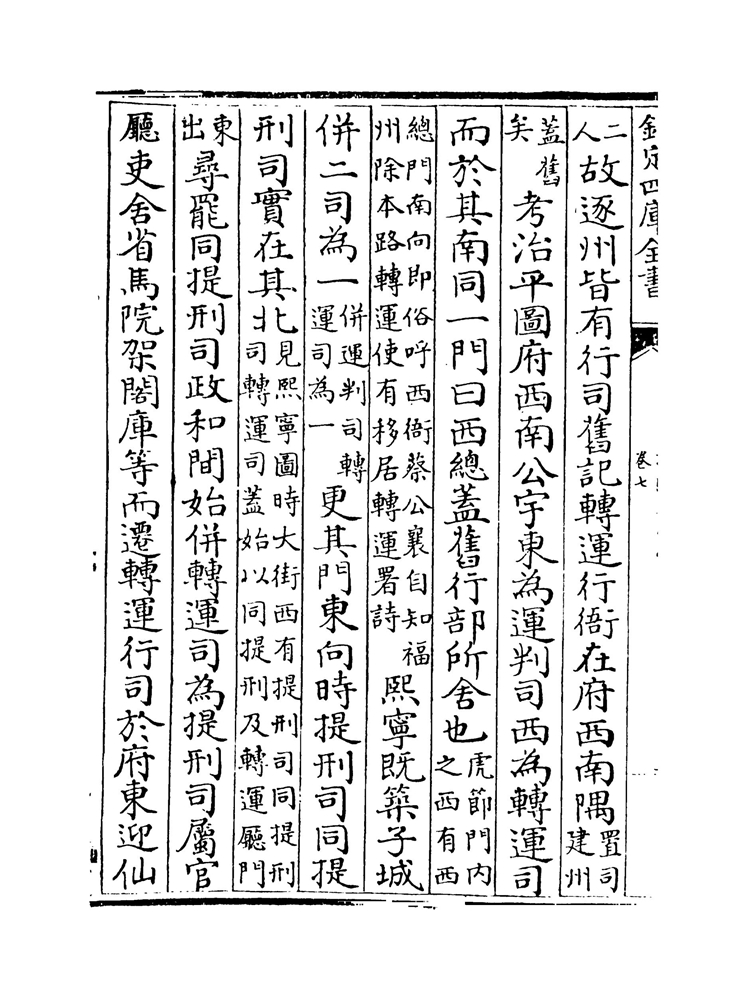 欽定四庫全書
卷七
二人故逐州皆有行司舊記轉運行衙在府西南隅置司建州
蓋舊矣考治平圖府西南公宇東為運判司西為轉運司
而於其南同一門曰西總蓋舊行部所舍也虎節門内之西有西
總門南向即俗呼西衙蔡公襄自知福州除本路轉運使有移居轉運署詩熙寧既築子城
併二司為一併運判司轉運司為一更其門東向時提刑司同提
刑司實在其北見熙寧圖時大街西有提刑司同提刑司轉運司蓋始以同提刑及轉運廳門
東出尋罷同提刑司政和間始併轉運司為提刑司屬官
廳吏舍省馬院架閣庫等而遷轉運行司於府東迎仙